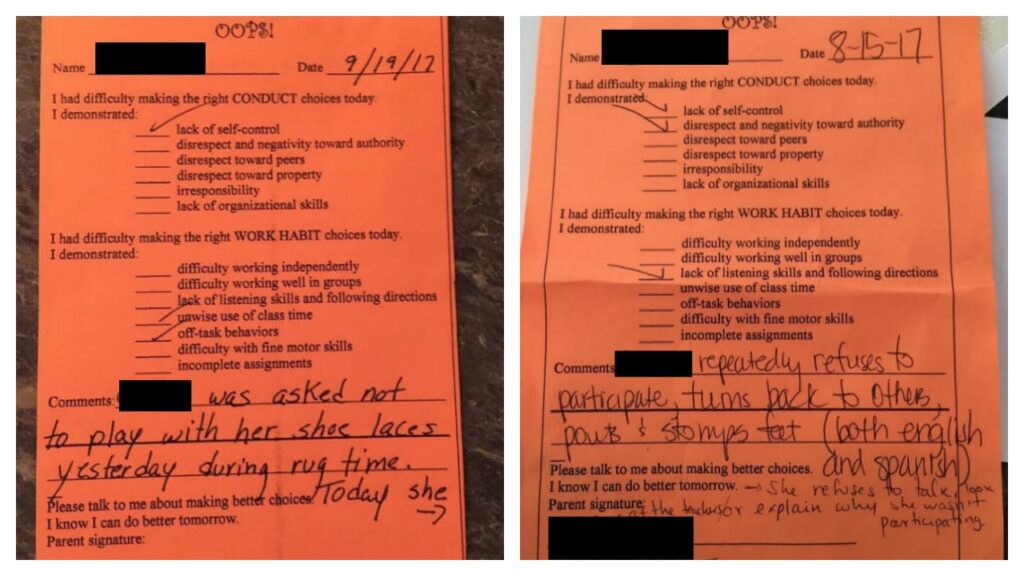 OOPS!
Name
Date 9/19/17
I had difficulty making the right CONDUCT choices today.
I demonstrated:
lack of self-control
disrespect and negativity toward authority
disrespect toward peers
disrespect toward property
irresponsibility
lack of organizational skills
I had difficulty making the right WORK HABIT choices today.
I demonstrated:
difficulty working independently
difficulty working well in groups
lack of listening skills and following directions
unwise use of class time
off-task behaviors
difficulty with fine motor skills
incomplete assignments
Comments: was asked not
to play with her shoe laces
yesterday during rug time.
Please talk to me about making better choices. Today she →
I know I can do better tomorrow.
Parent signature:
OOPS!
Name
Date 8-15-17
I had difficulty making the right CONDUCT choices today.
I demonstrated:
lack of self-control
disrespect and negativity toward authority
disrespect toward peers
disrespect toward property
irresponsibility
lack of organizational skills
I had difficulty making the right WORK HABIT choices today.
I demonstrated:
difficulty working independently
difficulty working well in groups
lack of listening skills and following directions
unwise use of class time
off-task behaviors
difficulty with fine motor skills
incomplete assignments
Comments repeatedly refuses to
participate, turns back to others,
pouts & stomps feet (both english
Please talk to me about making better choices. and spanish)
I know I can do better tomorrow. → She refuses to talk, look
Parent signature: at the teachers or explain why she wasn't
participating